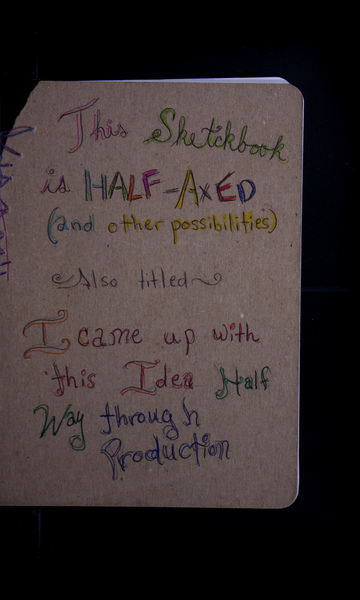 This Sketchbook
is HALF-AXED
(and other possibilities)
Also titled
I came up with
this Idea Half
Way through
Production